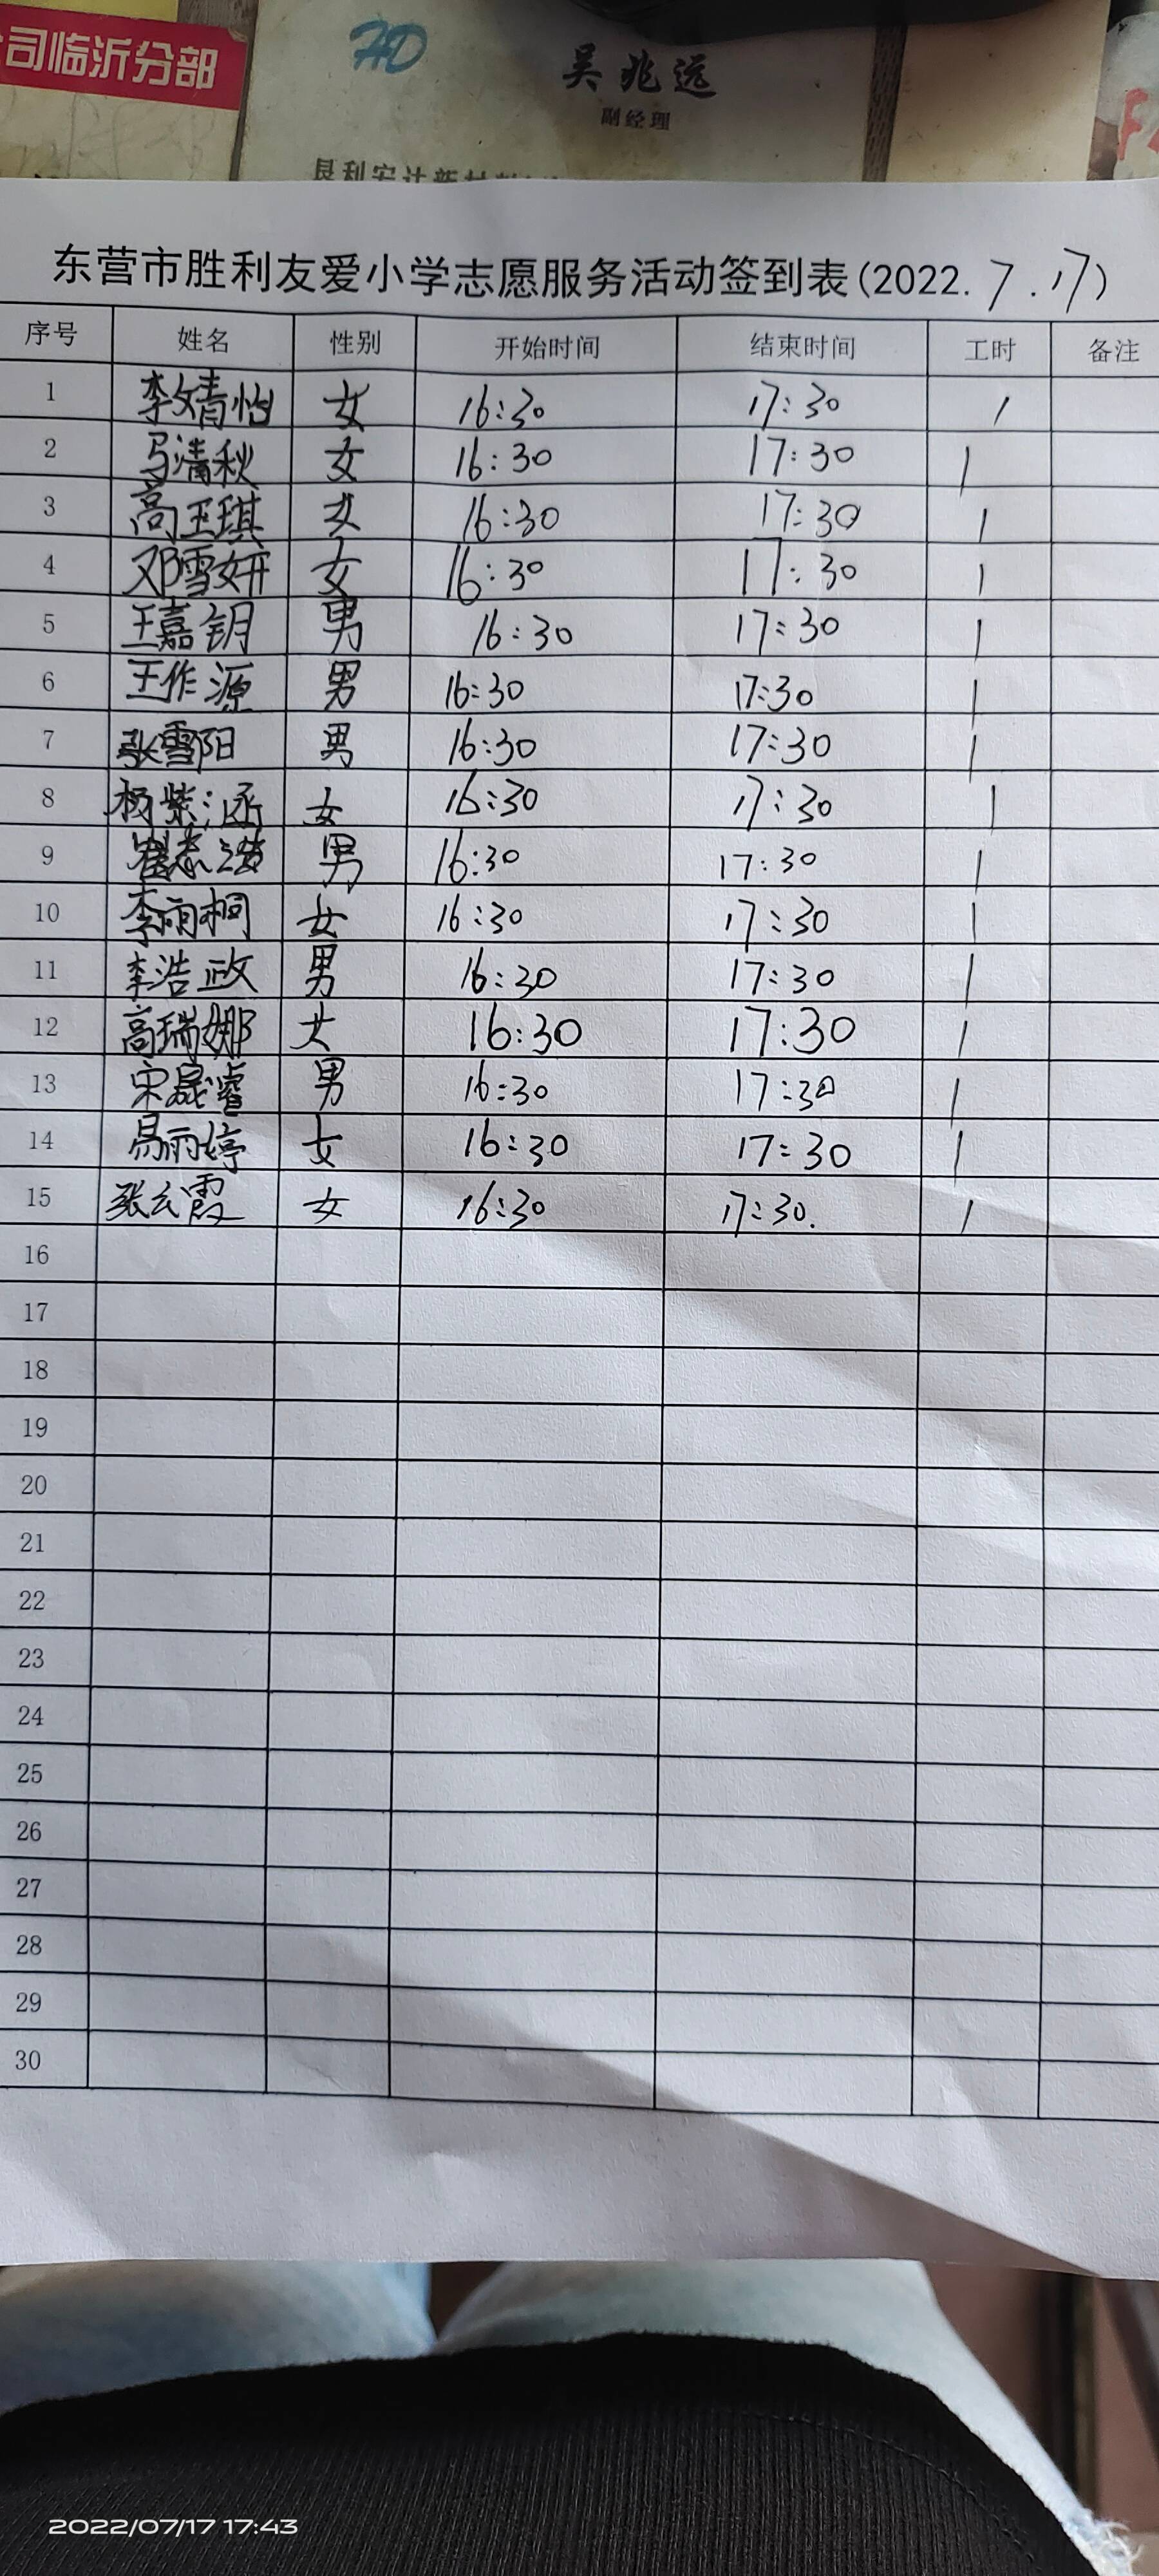 司临沂分部
HD
吴兆远
副经理
垦利安达新材料
东营市胜利友爱小学志愿服务活动签到表(2022.7.17)
序号 姓名 性别 开始时间 结束时间 工时 备注
1 李婧怡 女 16:30 17:30 1
2 马清秋 女 16:30 17:30 1
3 高玉琪 女 16:30 17:30 1
4 邓雪妍 女 16:30 17:30 1
5 王嘉钥 男 16:30 17:30 1
6 王作源 男 16:30 17:30 1
7 张雪阳 男 16:30 17:30 1
8 杨紫涵 女 16:30 17:30 1
9 男 16:30 17:30 1
10 李雨桐 女 16:30 17:30 1
11 李浩政 男 16:30 17:30 1
12 高瑞娜 女 16:30 17:30 1
13 宋晟睿 男 16:30 17:30 1
14 易雨婷 女 16:30 17:30 1
15 张云霞 女 16:30 17:30. 1
16
17
18
19
20
21
22
23
24
25
26
27
28
29
30
2022/07/17 17:43